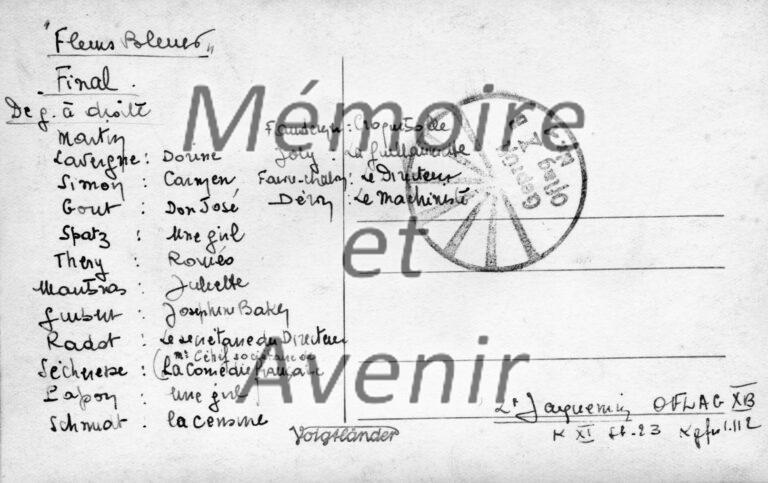 "Fleurs Bleues"
Final.
De g. à droite
Martin
Lavergne : Dorine
Simon : Carmen
Gout : Don José
Spatz : Une girl
Thery : Roméo
Mautras : Juliette
Guibert : Josephine Baker
Radot : Le secrétaire du Directeur
Sécheresse : (Mr Cébif sociétaire de
La Comédie Française
Lapoy : Une girl
Schmidt : la censure
: Croquitso de
Joly : La guillaumette
Faivre-Chalon : Le Directeur
Déroy : Le Machiniste
Oflag X B
Geprüft
Mémoire
et
Avenir
Voigtländer
Lt Jacquemin OFLAG XB
K XI St. 23 Kgfn 1.112